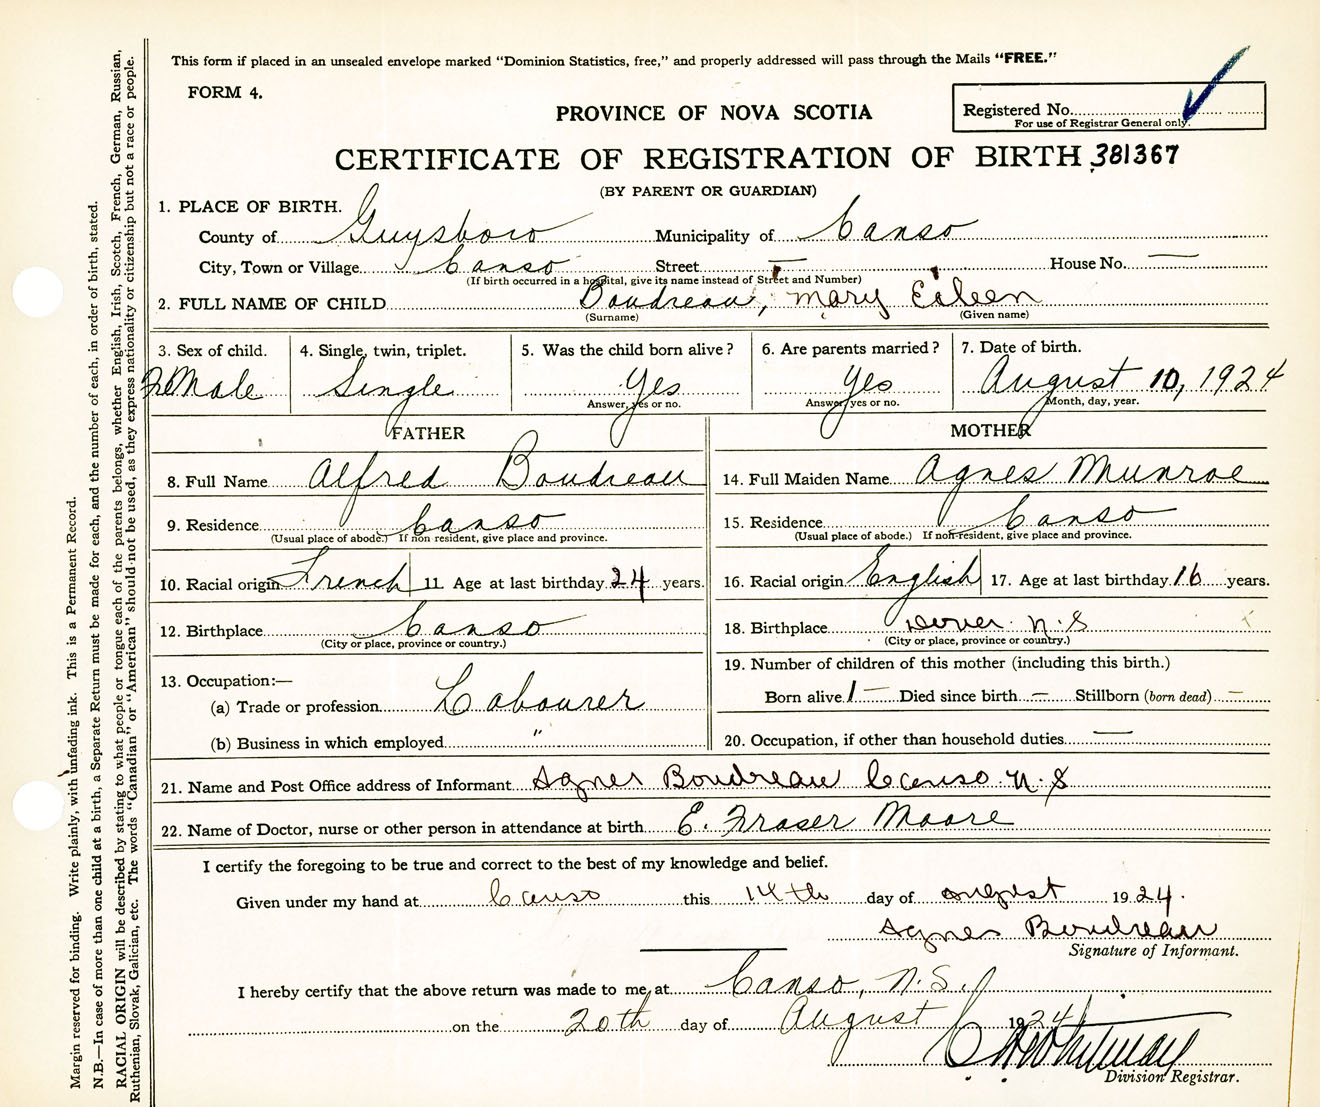 This form if placed in an unsealed envelope marked "Dominion Statistics, free," and properly addressed will pass through the Mails "FREE."
FORM 4.
PROVINCE OF NOVA SCOTIA
Registered No.
For use of Registrar General only.
CERTIFICATE OF REGISTRATION OF BIRTH 381367
(BY PARENT OR GUARDIAN)
1. PLACE OF BIRTH.
County of Guysboro Municipality of Canso
City, Town or Village Canso Street — House No. —
(If birth occurred in a hospital, give its name instead of Street and Number)
2. FULL NAME OF CHILD Boudreau, Mary Eileen
(Surname) (Given name)
3. Sex of child. 4. Single, twin, triplet. 5. Was the child born alive? 6. Are parents married? 7. Date of birth.
FeMale Single Yes Yes August 10, 1924
Answer, yes or no. Answer, yes or no. Month, day, year.
FATHER MOTHER
8. Full Name Alfred Boudreau 14. Full Maiden Name Agnes Munroe
9. Residence Canso 15. Residence Canso
(Usual place of abode.) If non-resident, give place and province. (Usual place of abode.) If non-resident, give place and province.
10. Racial origin French 11. Age at last birthday 24 years. 16. Racial origin English 17. Age at last birthday 16 years.
12. Birthplace Canso 18. Birthplace Dover N.S
(City or place, province or country.) (City or place, province or country.)
19. Number of children of this mother (including this birth.)
13. Occupation:—
(a) Trade or profession Labourer Born alive 1 — Died since birth — Stillborn (born dead) —
(b) Business in which employed " 20. Occupation, if other than household duties —
21. Name and Post Office address of Informant Agnes Boudreau Canso N.S
22. Name of Doctor, nurse or other person in attendance at birth E. Fraser Moore
I certify the foregoing to be true and correct to the best of my knowledge and belief.
Given under my hand at Canso this 14th day of August 1924.
Agnes Boudreau
Signature of Informant.
I hereby certify that the above return was made to me at Canso, N.S.
on the 20th day of August 1924
Division Registrar.
Margin reserved for binding. Write plainly, with unfading ink. This is a Permanent Record.
N.B.—In case of more than one child at a birth, a Separate Return must be made for each, and the number of each, in order of birth, stated.
RACIAL ORIGIN will be described by stating to what people or tongue each of the parents belongs, whether English, Irish, Scotch, French, German, Russian,
Ruthenian, Slovak, Galician, etc. The words "Canadian" or "American" should not be used, as they express nationality or citizenship but not a race or people.